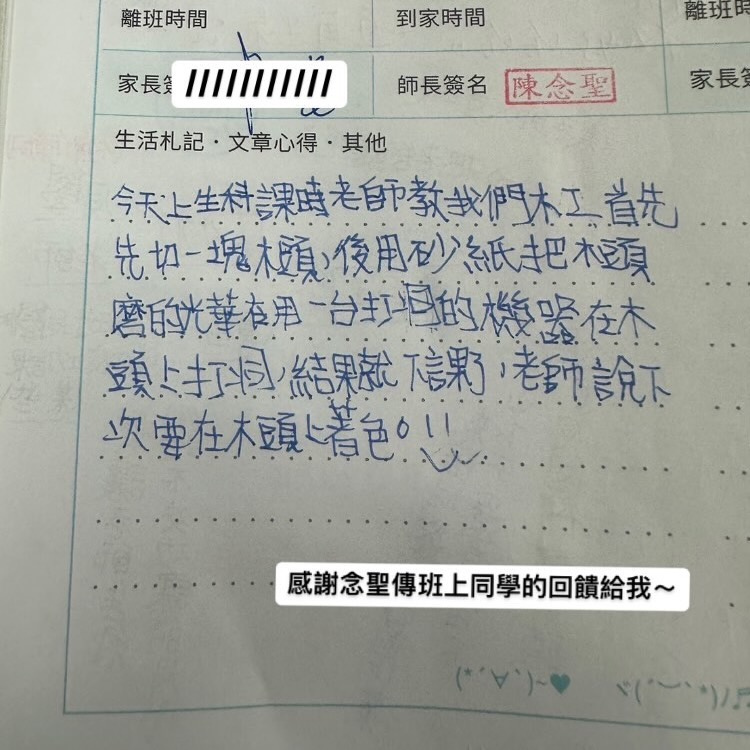 離班時間 到家時間 離班時
家長簽 師長簽名 陳念聖 家長簽
生活札記·文章心得·其他
今天上生科課時老師教我們木工首先
先切一塊木頭,後用砂紙把木頭
磨的光華在用一台打洞的機器在木
頭上打洞,結果就下課了,老師說下
次要在木頭上著色。!!
感謝念聖傳班上同學的回饋給我～